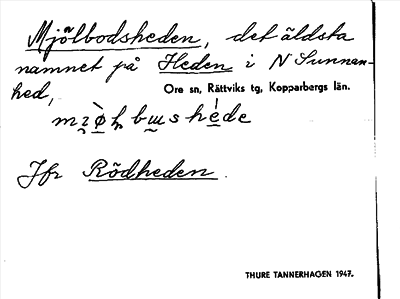 Mjölbodsheden, det äldsta
namnet på Heden i N Sunnan-
hed,
Ore sn, Rättviks tg, Kopparbergs län.
Jfr Rödheden.
THURE TANNERHAGEN 1947.